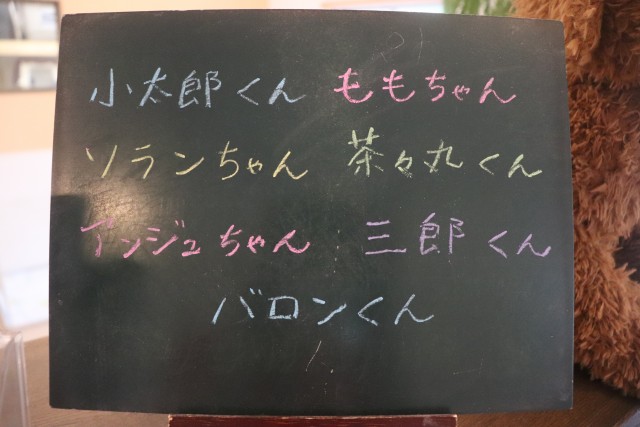 小太郎くん ももちゃん
ソランちゃん 茶々丸くん
アンジュちゃん 三郎くん
バロンくん